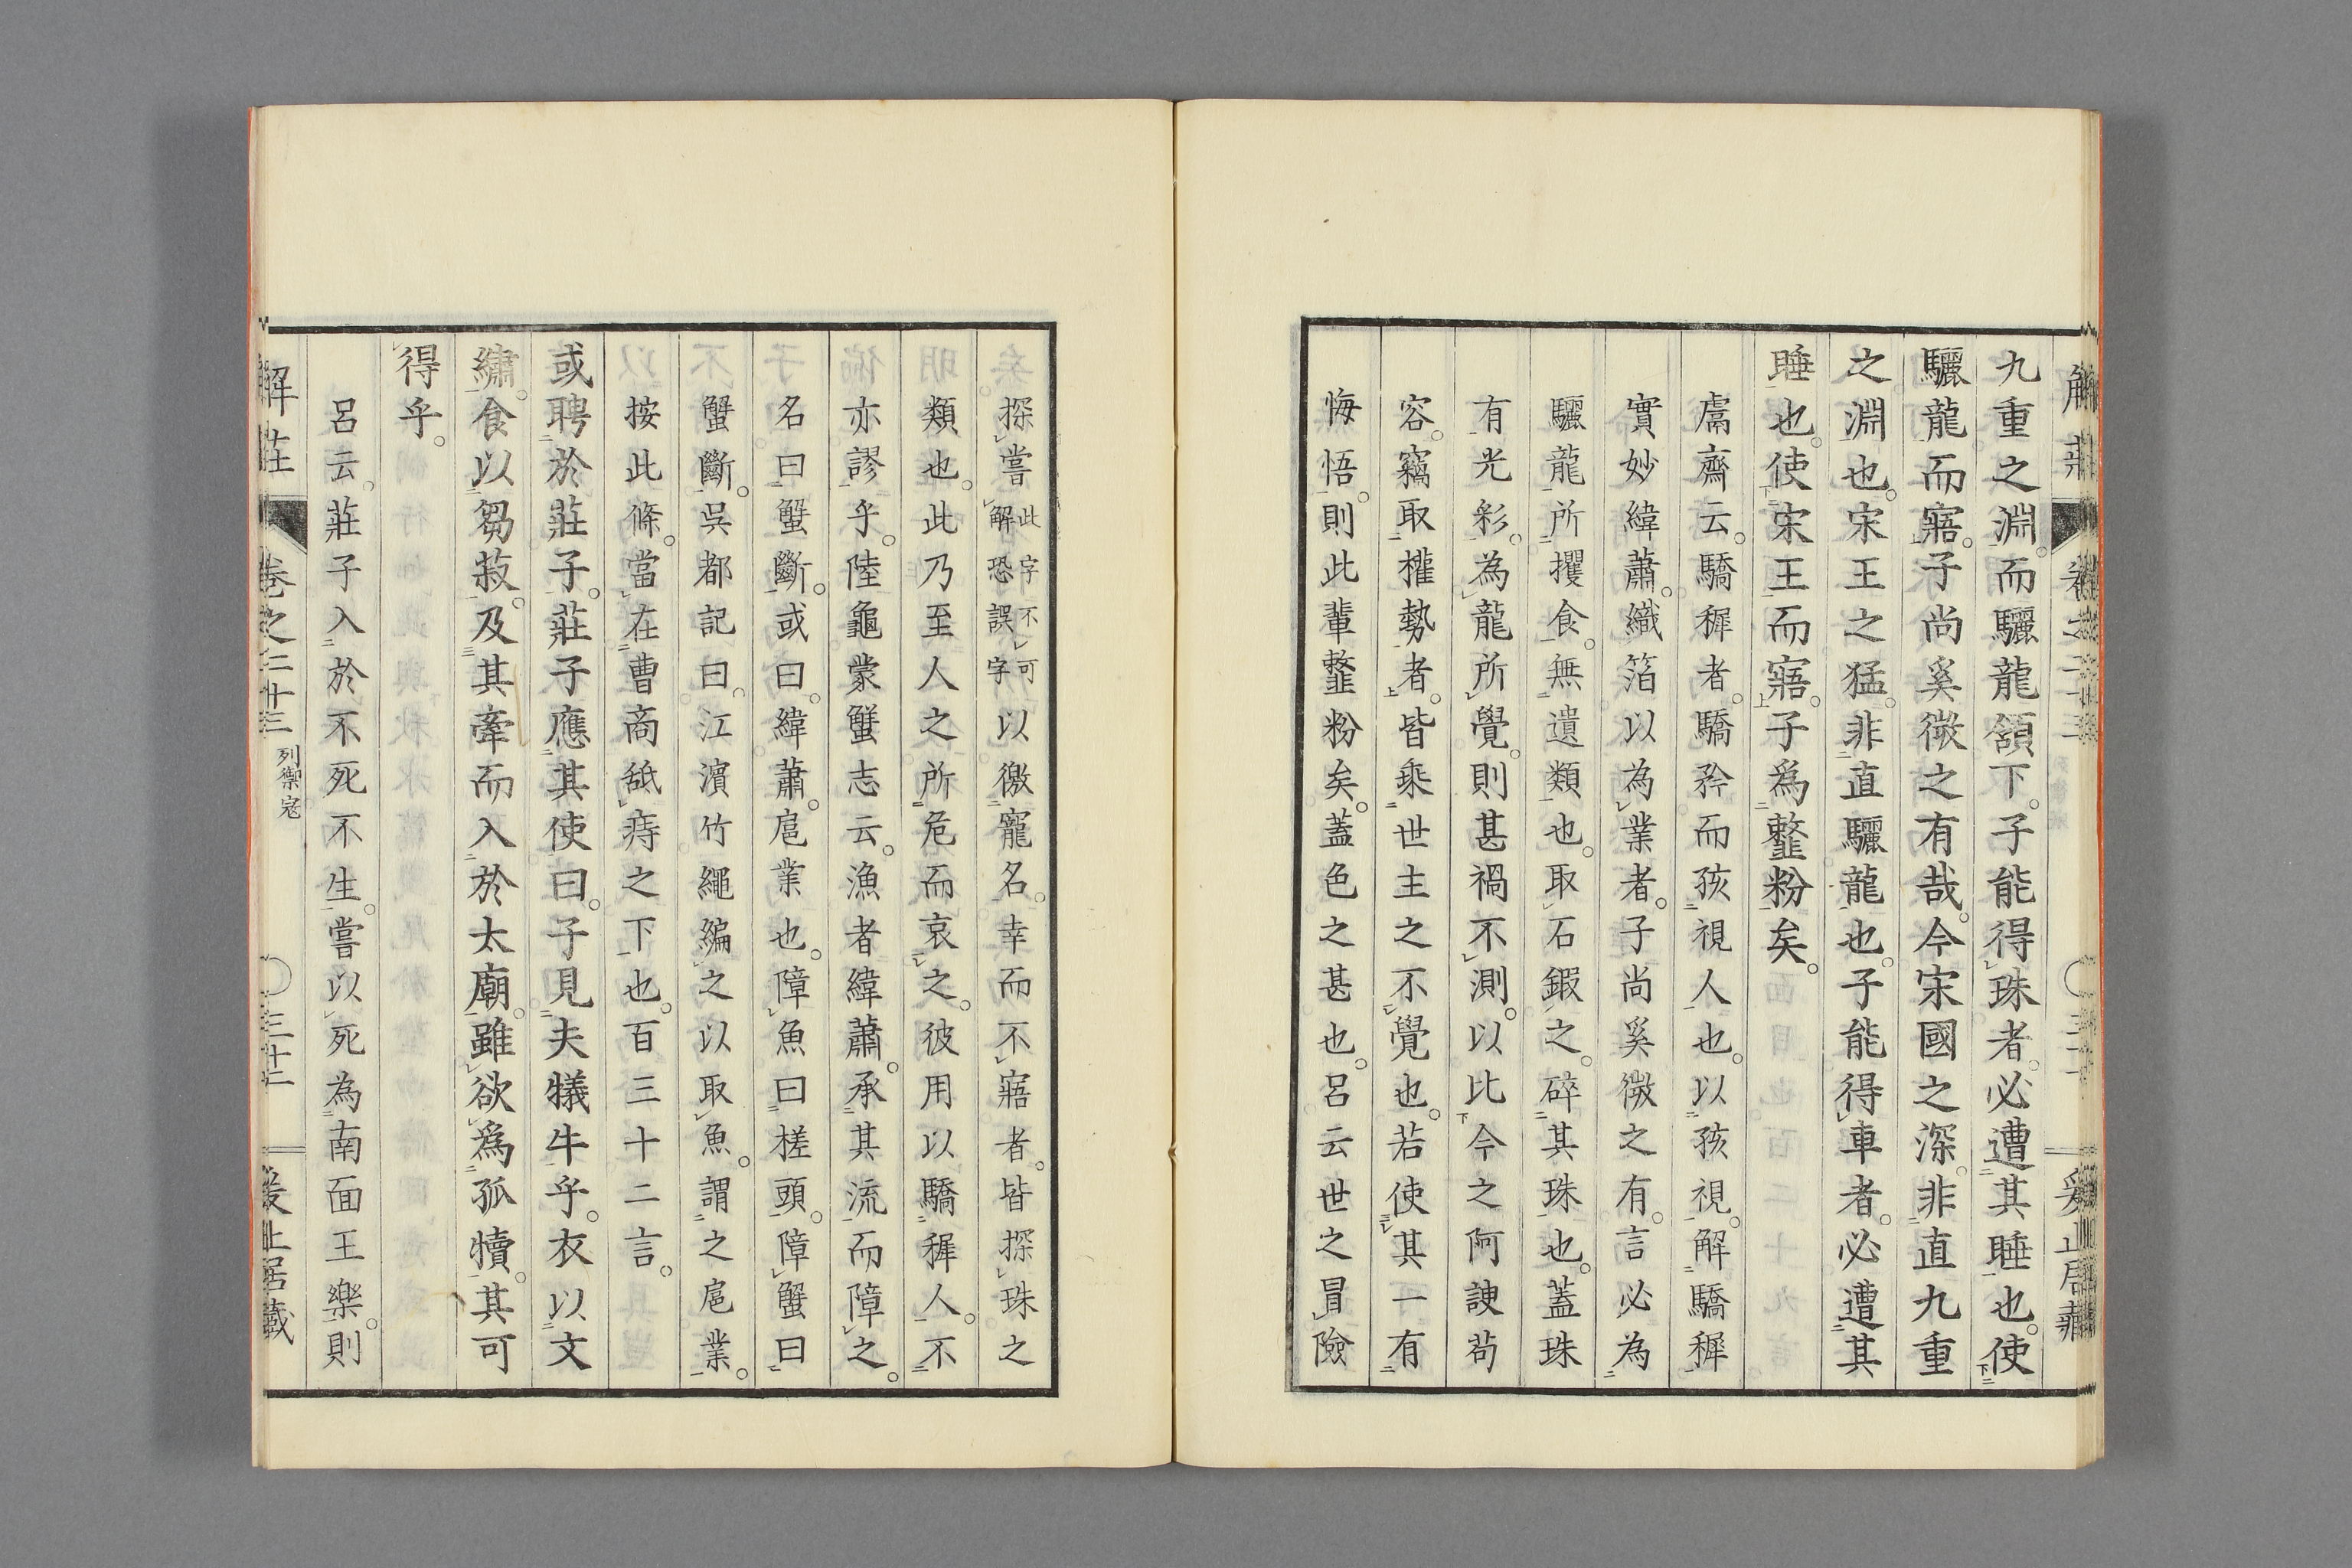 九重之淵。而驪龍頷下。子能得珠者。必遭其睡也。使
驪龍而寤。子尚奚微之有哉。今宋國之深。非直九重
之淵也。宋王之猛。非直驪龍也。子能得車者。必遭其
睡也。使宋王而寤。子爲韲粉矣。
鬳齋云。驕穉者。驕矜而孩視人也。以孩視。解驕穉
實妙緯蕭。織箔以為業者。子尚奚微之有。言必為
驪龍所攫食。無遺類也。取石鍜之。碎其珠也。蓋珠
有光彩。為龍所覺。則甚禍不測。以比今之阿諛苟
容。竊取權勢者。皆乘世主之不覺也。若使其一有
悔悟。則此輩韲粉矣。蓋色之甚也。呂云世之冒險
探嘗此字不可解恐誤字以徼寵名。幸而不寤者。皆探珠之
類也。此乃至人之所危而哀之。彼用以驕穉人。不
亦謬乎。陸龜蒙蟹志云。漁者緯蕭。承其流而障之。
名曰蟹斷。或曰。緯蕭。扈業也。障魚曰槎頭。障蟹曰
蟹斷。吳都記曰。江濱竹繩編之以取魚。謂之扈業。
按此條。當在曹商舐痔之下也。百三十二言。
或聘於莊子。莊子應其使曰。子見夫犧牛乎。衣以文
繡。食以芻菽。及其牽而入於太廟。雖欲爲孤犢。其可
得乎。
呂云。莊子入於不死不生。嘗以死為南面王樂。則
解莊 卷之二十三 列禦寇 三十二